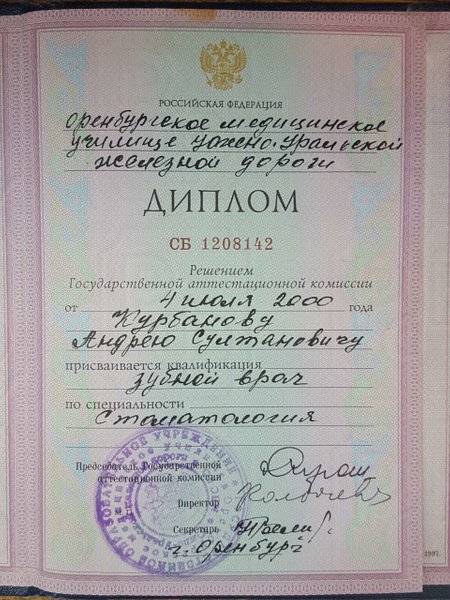 РОССИЙСКАЯ ФЕДЕРАЦИЯ
Оренбургское медицинское
училище Южно-Уральской
железной дороги
ДИПЛОМ
СБ 1208142
Решением
Государственной аттестационной комиссии
от 4 июля 2000 года
Курбанову
Андрею Султановичу
присваивается квалификация
зубной врач
по специальности
Стоматология
Председатель Государственной
аттестационной комиссии
Директор
Секретарь
г. Оренбург
1997.